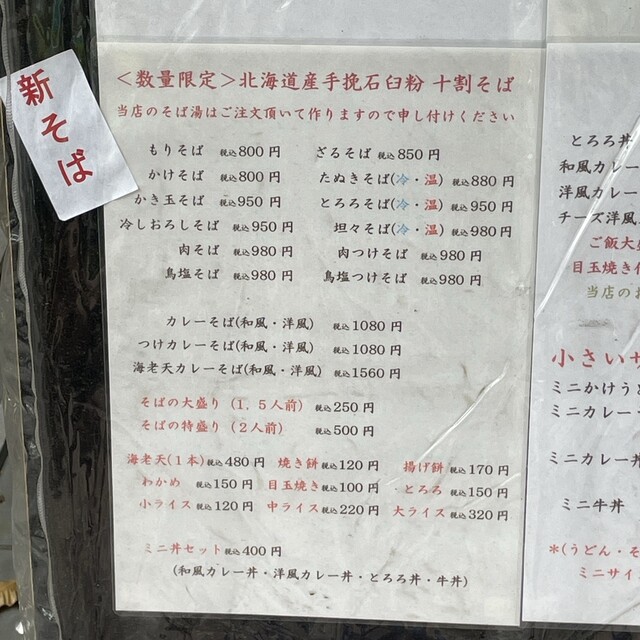 新そば
＜数量限定＞北海道産手挽石臼粉 十割そば
当店のそば湯はご注文頂いて作りますので申し付けください
もりそば 税込800円 ざるそば 税込850円
かけそば 税込800円 たぬきそば(冷・温) 税込880円
かき玉そば 税込950円 とろろそば(冷・温) 税込950円
冷しおろしそば 税込950円 坦々そば(冷・温) 税込980円
肉そば 税込980円 肉つけそば 税込980円
鳥塩そば 税込980円 鳥塩つけそば 税込980円
カレーそば(和風・洋風) 税込1080円
つけカレーそば(和風・洋風) 税込1080円
海老天カレーそば(和風・洋風) 税込1560円
そばの大盛り（1.5人前） 税込250円
そばの特盛り（2人前） 税込500円
海老天(1本)税込480円 焼き餅税込120円 揚げ餅 税込170円
わかめ 税込150円 目玉焼き税込100円 とろろ 税込150円
小ライス 税込120円 中ライス税込220円 大ライス 税込320円
ミニ丼セット税込400円
(和風カレー丼・洋風カレー丼・とろろ丼・牛丼)
とろろ丼
和風カレー
洋風カレー
チーズ洋風
ご飯大盛
目玉焼き
当店の
小さい
ミニかけう
ミニカレー
ミニカレー丼
ミニ牛丼
*(うどん・そ
ミニサイ